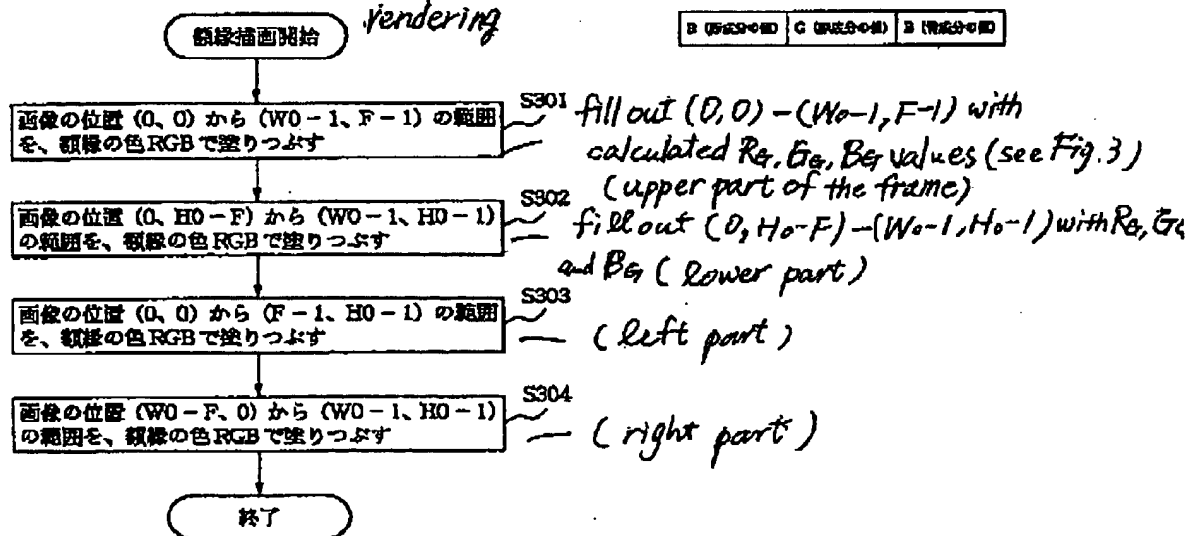 rendering
額縁描画開始
S301
画像の位置 (0、0) から (W0-1、F-1) の範囲
を、額縁の色RGBで塗りつぶす
fill out (0,0)-(W0-1,F-1) with
calculated RG, GG, BG values (see Fig.3)
(upper part of the frame)
S302
画像の位置 (0、H0-F) から (W0-1、H0-1)
の範囲を、額縁の色RGBで塗りつぶす
fill out (0,H0-F)-(W0-1,H0-1) with RG, GG
and BG (lower part)
S303
画像の位置 (0、0) から (F-1、H0-1) の範囲
を、額縁の色RGBで塗りつぶす
(left part)
S304
画像の位置 (W0-F、0) から (W0-1、H0-1)
の範囲を、額縁の色RGBで塗りつぶす
(right part)
終了